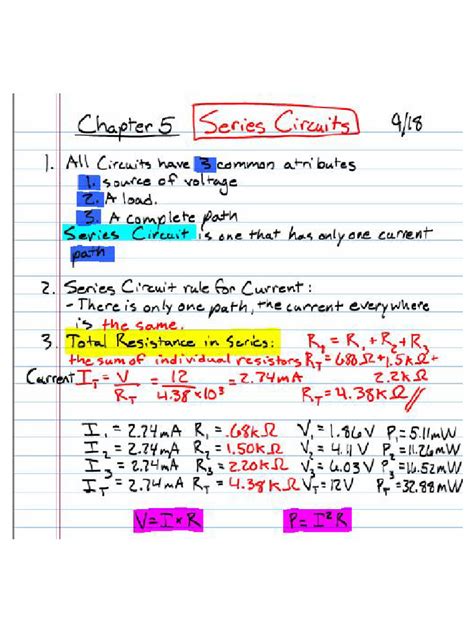 Chapter 5 Series Circuits 9/18
1. All Circuits have 3 common atributes
1. source of voltage
2. A load.
3. A complete path
Series Circuit is one that has only one current
path
2. Series Circuit rule for Current:
- There is only one path, the current everywhere
is the same.
3. Total Resistance in Series: R₂ = R₁ + R₂ + R₃
the sum of individual resistors R_T = 680Ω + 1.5KΩ +
Current I_T = V/R_T = 12/4.38×10³ = 2.74mA 2.2kΩ
R_T = 4.38KΩ
I₁ = 2.74mA R₁ = .68kΩ V₁ = 1.86V P₁ = 5.11mW
I₂ = 2.74mA R₂ = 1.50KΩ V₂ = 4.11V P₂ = 11.26mW
I₃ = 2.74mA R₃ = 2.20KΩ V₃ = 6.03V P₃ = 16.52mW
I_T = 2.74mA R_T = 4.38KΩ V_T = 12V P_T = 32.88mW
V = I × R P = I²R